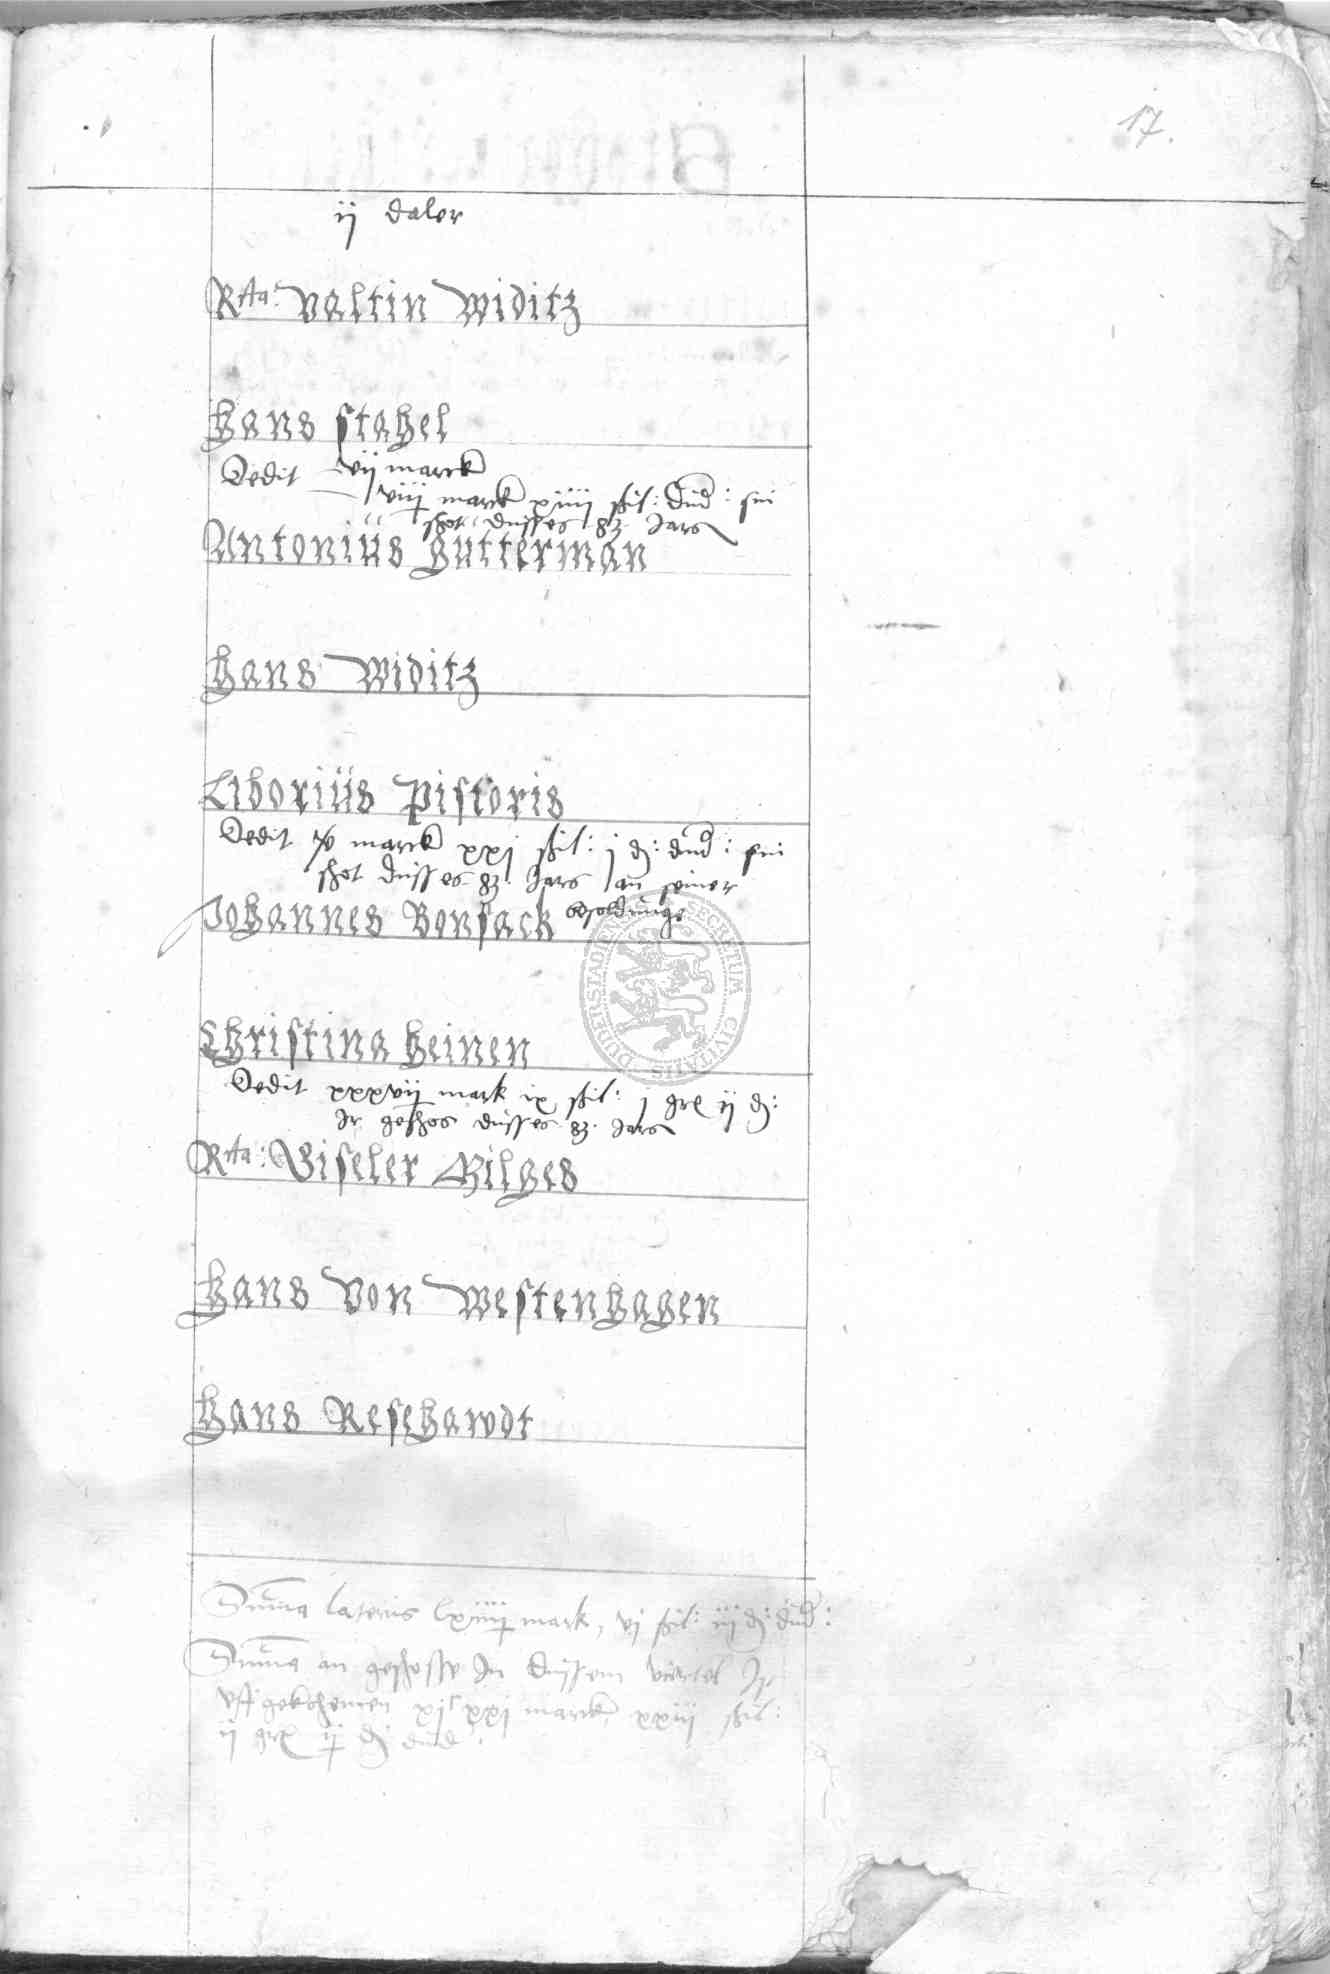 17.
ij daler
Rta: Valtin Widitz
Hans Stahel
Dedit vij marck
viij marck xiiij ßil: Dud: sin
shot dusses 83. Jars
Antonius Hutterman
Hans Widitz
Liborius Pistoris
Dedit marck xxj ßil: j d: dud: sin
shot dusses 83. Jars an seiner
besoldunge
Johannes Bonsack
Christina Heinen
Dedit xxxvij mark ix ßil: j gr ij d:
Ir geschos dusses 83. Jars
Rta: Giseler Gilges
Hans Von Westenhagen
Hans Resehawdt
Summa lateris lxiiij mark, vj ßil: iij d: dud:
Summa an geschosse In dussem viertel Ir
uffgekohemen xjc xxj marck, xxiij ßil:
ij gr ij d dud:
SECRETUM CIVITATIS DUDERSTADIENSIS